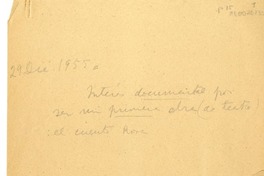 29 Dic 1955
Interés documental por
ser mi primera obra (de teatro)
: el cuento Rosa